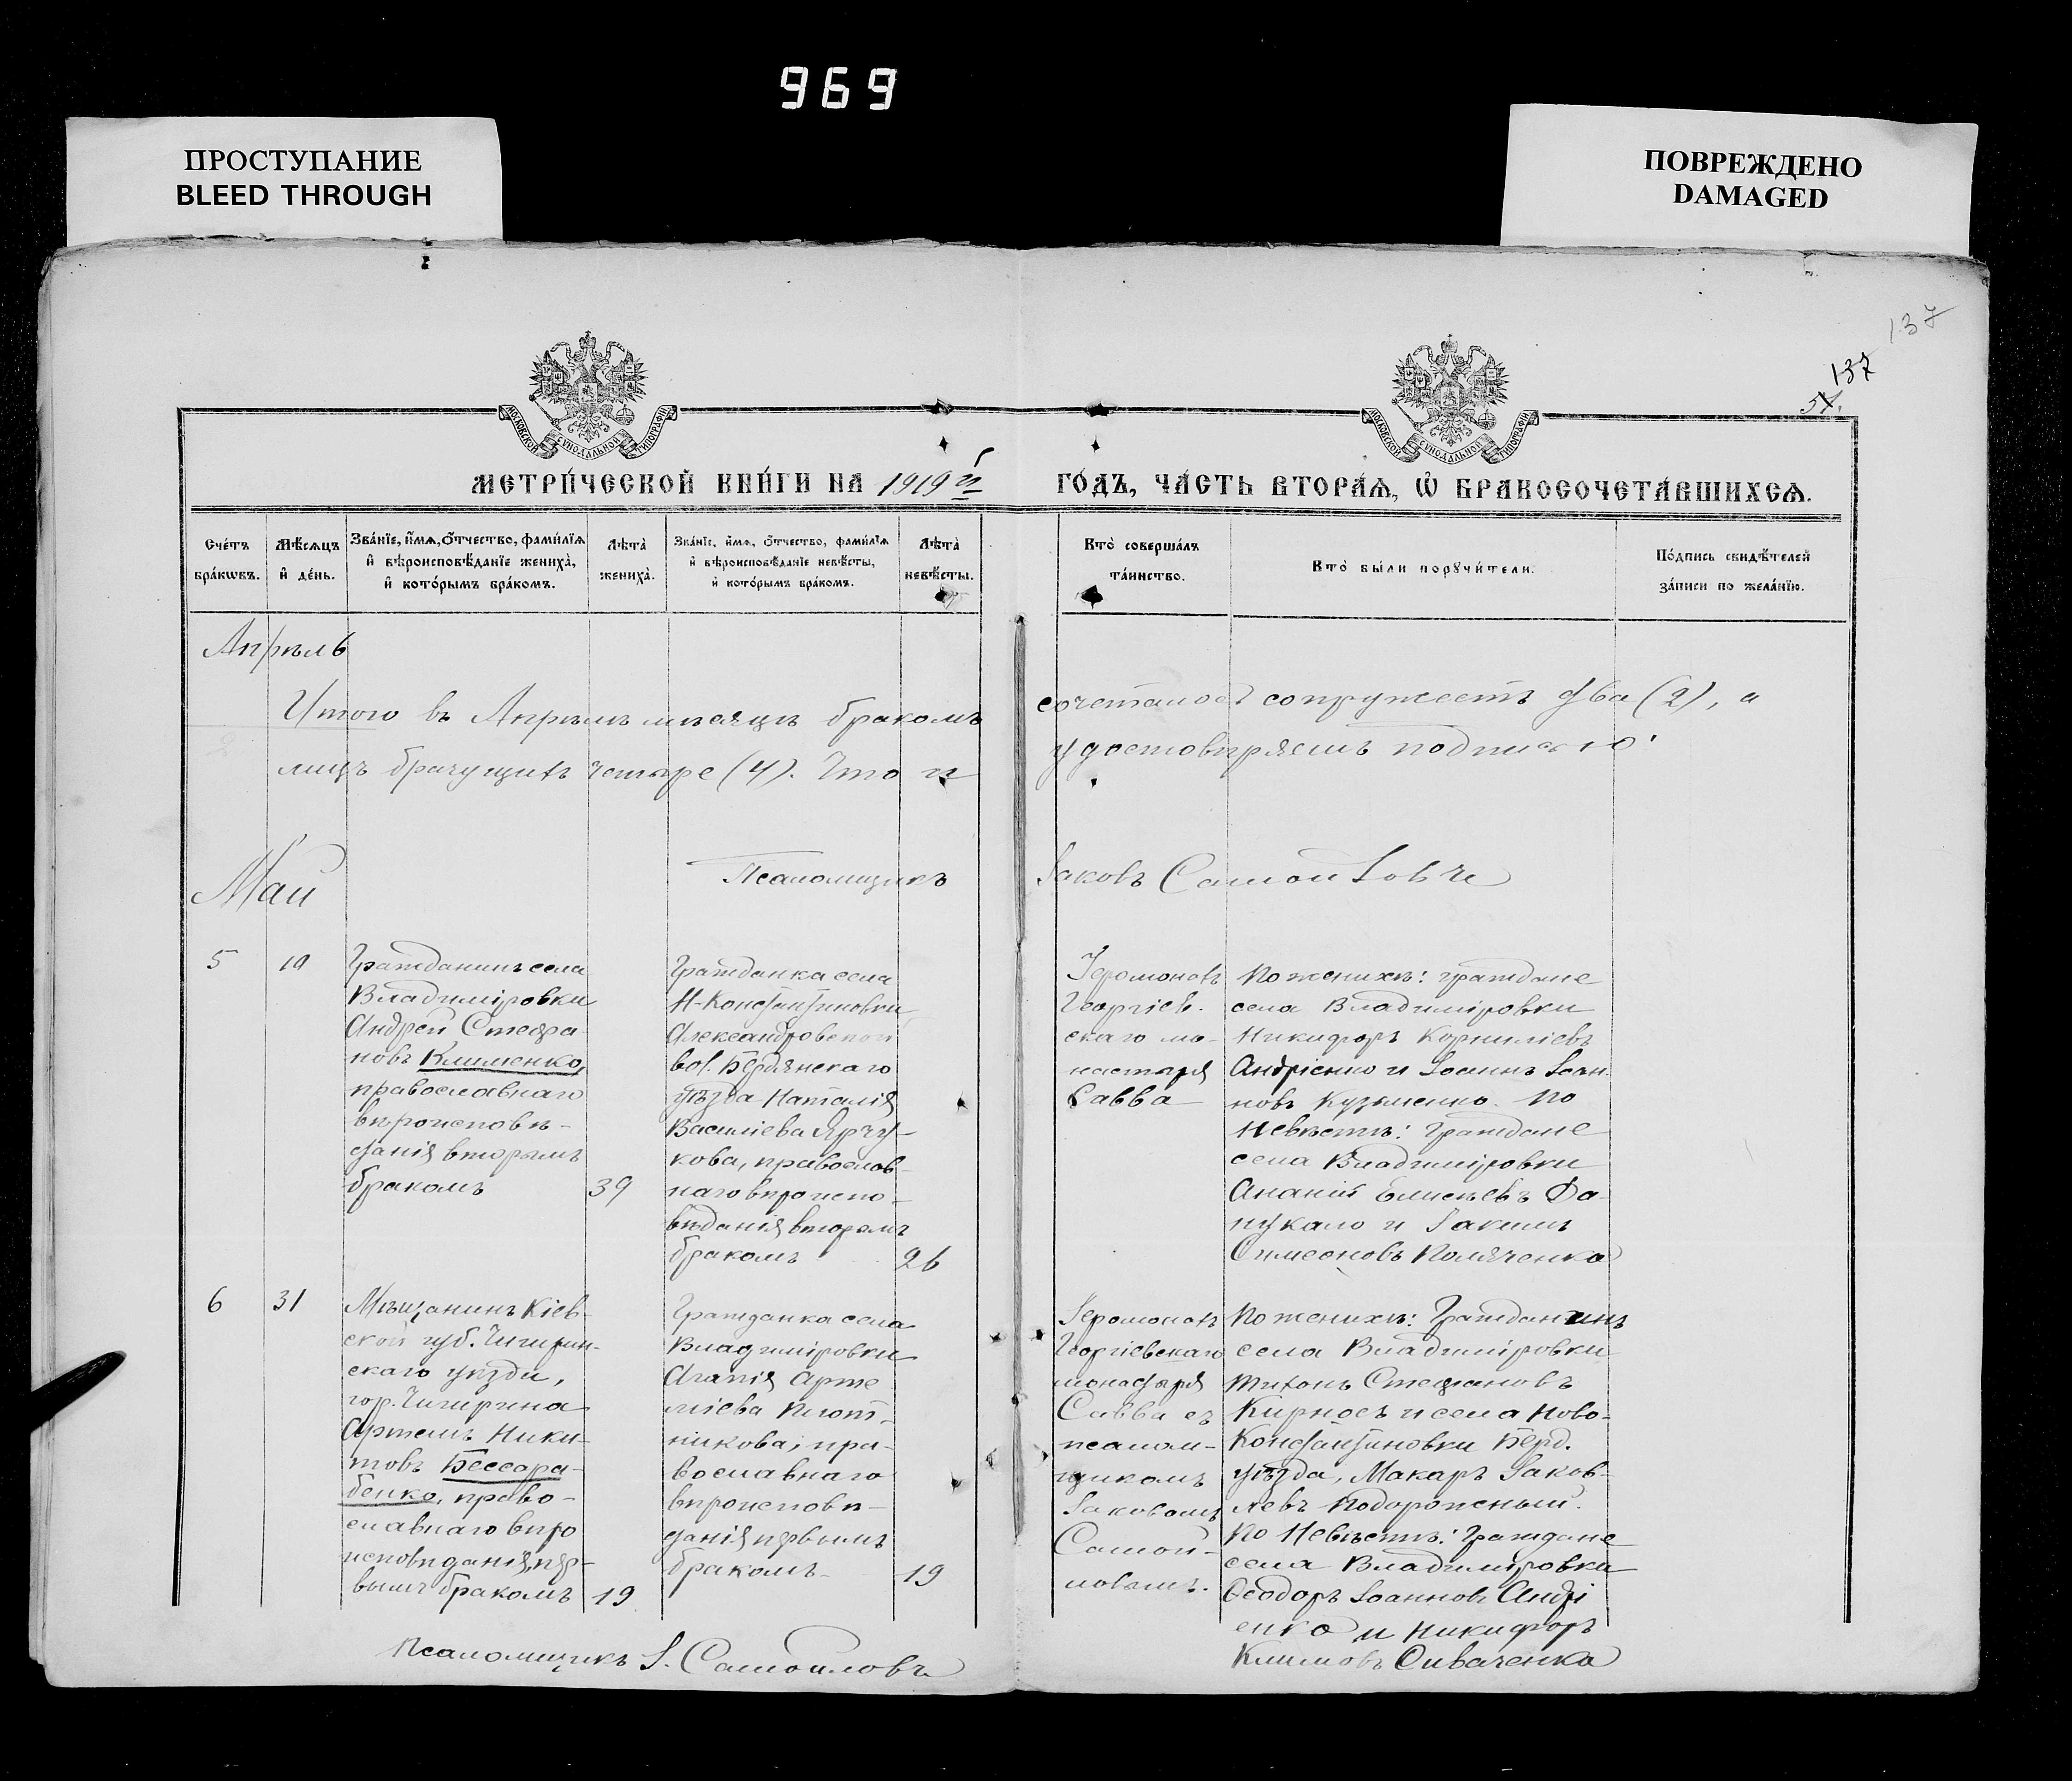 969
ПРОСТУПАНИЕ
BLEED THROUGH
ПОВРЕЖДЕНО
DAMAGED
137
137
МОСКОВСКОЙ СѴНОДАЛЬНОЙ ТИПОГРАФІИ
МОСКОВСКОЙ СѴНОДАЛЬНОЙ ТИПОГРАФІИ
МЕТРИ́ЧЕСКОЙ КНИ́ГИ НА 1919 й
ГО́ДЪ, ЧА́СТЬ ВТОРА́Ѧ, Ѽ БРАКОСОЧЕТА́ВШИХСѦ.
Сче́тъ
бра́кѡвъ.
Мѣ́сѧцъ
и҆ де́нь.
Зва́нїе, и҆́мѧ, ѻ҆́тчество, фами́лїѧ
и҆ вѣроисповѣ́данїе жениха̀,
и҆ кото́рымъ бра́комъ.
Лѣта̀
жениха̀.
Зва́нїе, и҆́мѧ, ѻ҆́тчество, фами́лїѧ
и҆ вѣроисповѣ́данїе невѣ́сты,
и҆ кото́рымъ бра́комъ.
Лѣта̀
невѣ́сты.
Кто̀ соверша́лъ
та́инство.
Кто̀ бы́ли порꙋчи́тели.
По́дпись свидѣ́телей
за́писи по жела́нїю.
Апрѣль
Итого въ Апрѣлѣ мѣсяцѣ бракомъ
сочеталось супружествъ два (2), а
лицъ брачущихъ четыре (4). Что и
удостовѣряемъ подписью:
Псаломщикъ
Іаковъ Самойловъ
Май
5
19
Гражданинъ села
Владиміровки
Андрей Стефа
новъ Клименко,
православнаго
вѣроисповѣ-
данія вторымъ
бракомъ
39
Гражданка села
Н-Константиновки
Александровской
вол. Бердянскаго
уѣзда Наталія
Василіева Ярчу-
кова, православ-
наго вѣроиспо-
вѣданія вторымъ
бракомъ
26
Іеромонахъ
Георгіев-
скаго мо-
настыря
Савва
По женихѣ: граждане
села Владиміровки
Никифоръ Корниліевъ
Андріенко и Іоаннъ Іоан-
новъ Кузьменко. По
невѣстѣ: Граждане
села Владиміровки
Ананій Елисѣевъ
и Іакимъ
Симеоновъ
6
31
Мѣщанинъ Кіев-
ской губ. Чигирин-
скаго уѣзда,
гор. Чигирина
Артемъ Ники-
товъ Бессара-
бенко, право-
славнаго вѣро
исповѣданія, пер-
вымъ бракомъ
19
Гражданка села
Владиміровки
Агапія Арте
міева Плот-
никова, пра-
вославнаго
вѣроисповѣ-
данія первымъ
бракомъ
19
Іеромонахъ
Георгіевскаго
монастыря
Савва съ
псалом-
щикомъ
Іаковомъ
Самой-
ловымъ.
По женихѣ: Гражданинъ
села Владиміровки
Тихонъ Стефановъ
Кирносъ и села Ново-
Константиновки Берд.
уѣзда, Макаръ Іаков-
левъ Подорожный.
По Невѣстѣ: Граждане
села Владиміровки
Ѳеодоръ Іоанновъ Андрі
енко и Никифоръ
Климовъ Сиваченко
Псаломщикъ І. Самойловъ